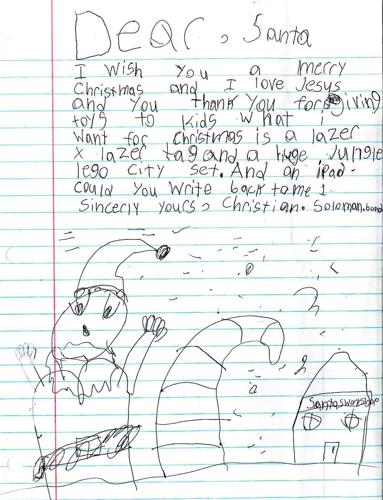 Dear, Santa
I wish you a merry
Christmas and I love Jesus
and you thank you for giving
toys to kids what i
want for christmas is a lazer
x lazer tag and a huge Jungle
lego city set. And an ipad.
could you write back to me 1
Sincerly yours, Christian. Soloman.bond
Santasworkshop